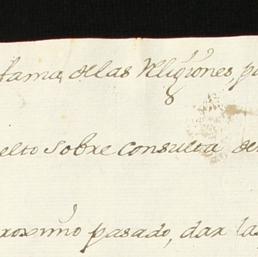 fama, de las Religiones, p
elto sobre consulta de
roximo pasado, dar las